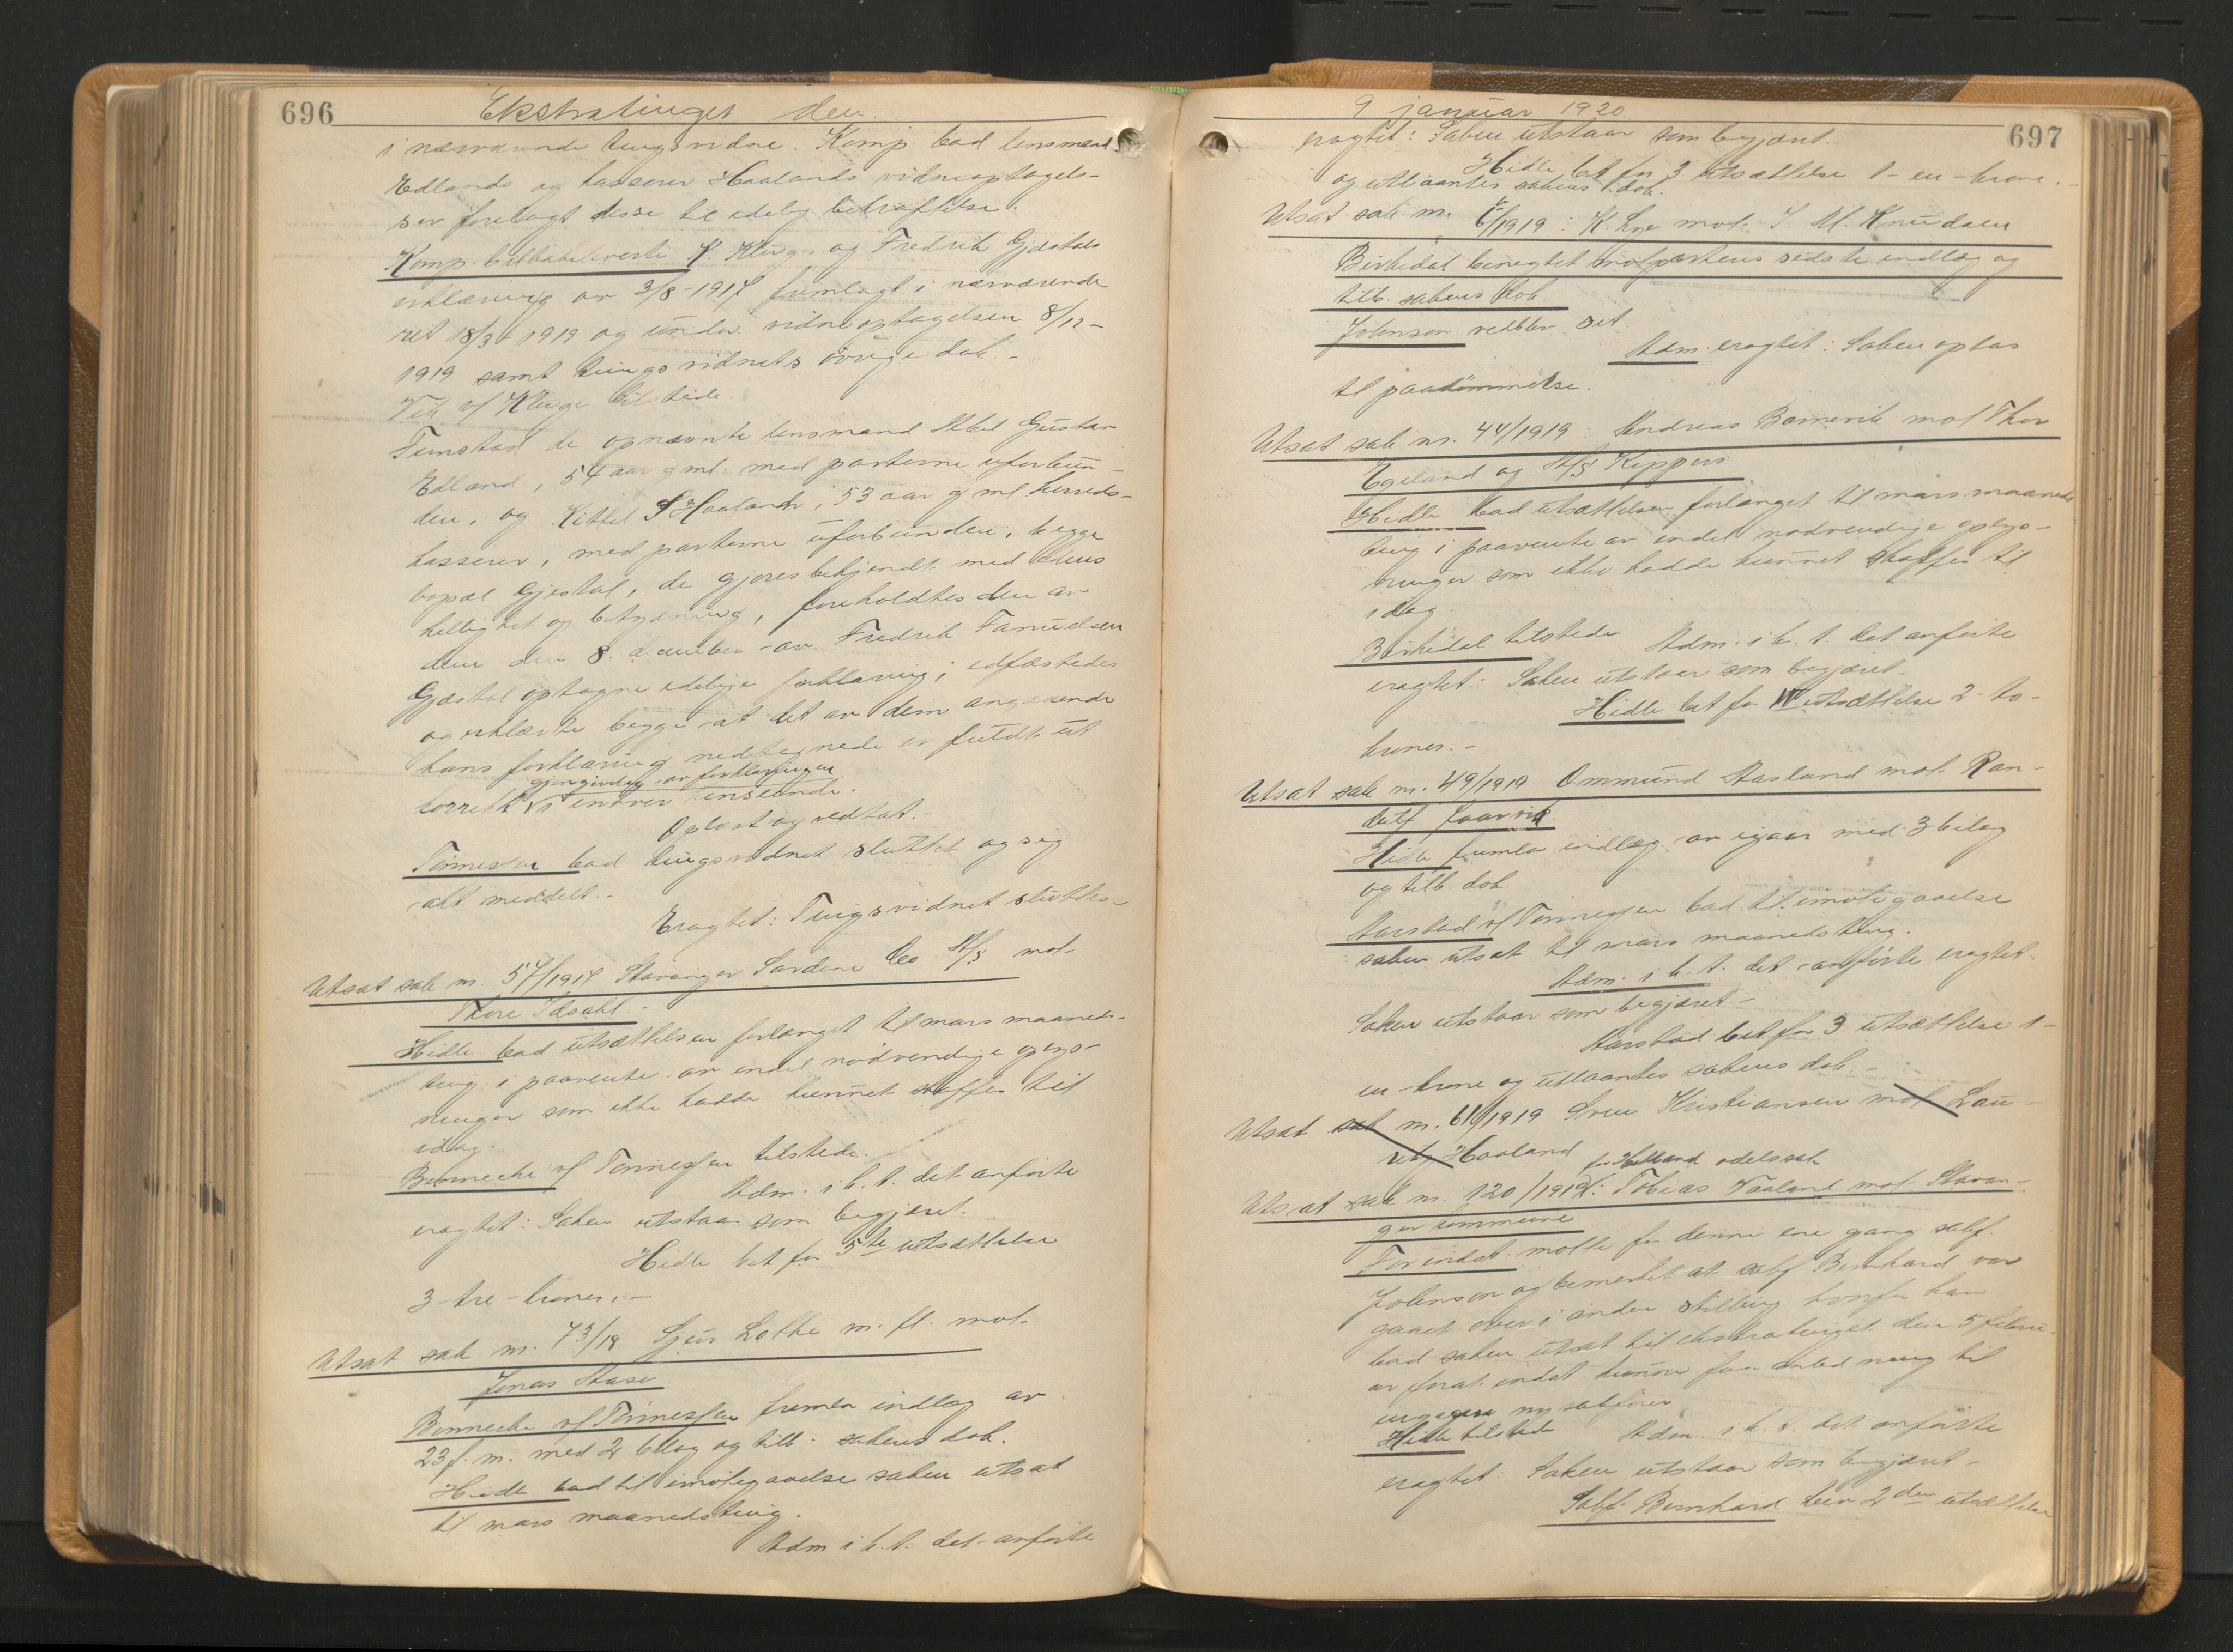 696
Ekstratinget den
i nærværende tingsvidne. Komp. bad lensmand
Edlands og kasserer Haalands vidneoptagel-
ser forelagt disse til edelig bekræftelse.
Komp. tilbakeleverte K. Kluge og Fredrik Gjæstals
erklæring av 3/8-1917 fremlagt i nærværende
ret 18/3-1919 og under vidneoptagelsen 8/12-
1919 samt tingsvidnets övrige dok.-
Vik v/ Kluge tilstede.
Fremstod de opnævnte lensmand Abel Gustav
Edland, 54 aar gml. med parterne uforbun-
den, og Kittel S Haaland, 53 aar gml. herreds-
kasserer, med parterne uforbunden, begge
bopæl Gjestal, de gjöres bekjendt med edens
hellighet og betydning, foreholdtes den av
dem den 8. december av Fredrik Tanuelsen
Gjæstal optagne edelige forklaring; edfæstedes
og erklærte begge at det av dem angaaende
hans forklaring nedtegnede er fuldt ut
gjengivelse av forklaringen
korrekt i enhver henseende.
Oplæst og vedtat.-
Tönnessen bad tingsvidnet sluttet og sig
akt meddelt.-
Eragtet: Tingsvidnet sluttes.-
Utsat sak nr. 57/1917 Stavanger Sardine Co A/S mot
Thore Idsahl.-
Hidle bad utsættelsen forlænget til mars maaneds-
ting i paavente av endel nödvendige oplys-
ninger som ikke hadde kunnet skaffes til
idag.
Bennecke v/ Tönnessen tilstede.
Adm. i h. t. det anförte
eragtet: Saken utstaar som begjæret.
Hidle bet for 5te utsættelse
3-tre-kroner.-
Utsat sak nr. 73/18 Sjur Lothe m. fl. mot
Jonas Aase
Bennecke v/ Tönnessen fremla indlæg av
23 f. m. med 2 bilag og tilb. sakens dok.
Hidle bad til imötegaaelse saken utsat
til mars maanedsting.
Adm i h. t. det anförte
9 januar 1920.
697
eragtet: Saken utstaar som begjæret.
Hidle bet for 3 utsættelse 1-en-krone.-
og utlaantes sakens dok.
Utsat sak nr. 6/1919: K. Lye mot J. M. Knudsen
Birkedal benegtet motpartens sidste indlæg og
tilb. sakens dok.
Johnson vedblev sit.
Adm. eragtet: Saken optas
til paadömmelse.
Utsat sak nr. 44/1919: Andreas Bamerik mot Thor
Egeland og A/S Kippers
Hidle bad utsættelsen forlænget til mars maaneds
ting i paavente av endel nödvendige oplys-
ninger som ikke hadde kunnet skaffes til
idag.
Birkedal tilstede.
Adm. i h. t. det anförte
eragtet: Saken utstaar som begjæret.-
Hidle bet for utsættelse 2-to-
kroner.-
Utsat sak nr. 49/1919 Ommund Aasland mot Ran-
dulf Jaarvik.
Hidle fremla indlæg av igaar med 3 bilag
og tilb dok.
Aarstad v/ Tönnessen bad til imötegaaelse
saken utsat til mars maanedsting.
Adm. i h. t. det anförte eragtet.
Saken utstaar som begjæret.-
Aarstad bet for 3 utsættelse 1-
en-krone og utlaantes sakens dok.-
Utsat sak nr. 61/1919 Sven Kristiansen mot Lau-
ritz Haaland
for Helland odelssak
Utsat sak nr. 120/1919: Tobias Vaaland mot Stavan-
ger kommune
For indst. mötte for denne ene gang sakf.
Johnson og bemerket at sakf. Bernhard var
gaaet over i anden stilling hvorfor han
bad saken utsat til ekstratinget den 5 febru-
ar forat indst kunne faa anledning til
engagere ny sakförer
Hidle tilstede
Adm. i h. t. det anförte
eragtet: Saken utstaar som begjæret.-
Sakf. Bernhard bær 2den utsættelse